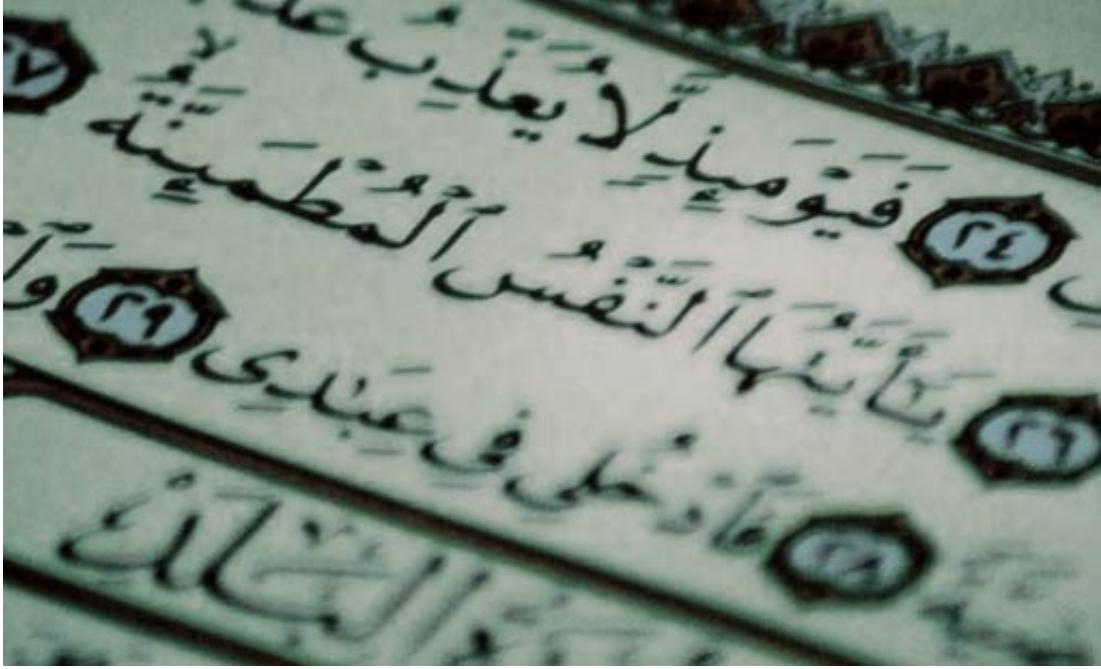 ٢٤ فَيَوْمَئِذٍ لَّا يُعَذِّبُ
٢٦ يَـٰٓأَيَّتُهَا ٱلنَّفْسُ ٱلْمُطْمَئِنَّةُ ٢٧
٢٨ فَٱدْخُلِى فِى عِبَـٰدِى ٢٩
البَلَدِ